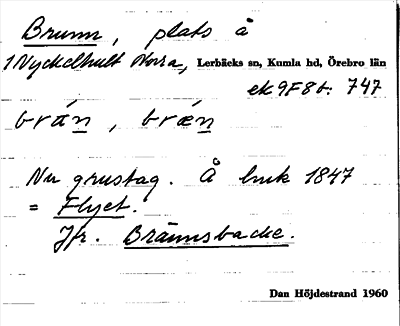 Brunn, plats å
1 Nyckelhult Norra, Lerbäcks sn, Kumla hd, Örebro län
ek 9F8d: 747
brá̱n, bræ̱n
Nu grustag. Å huk 1847
= Flyet.
Jfr. Brännsbacke.
Dan Höjdestrand 1960